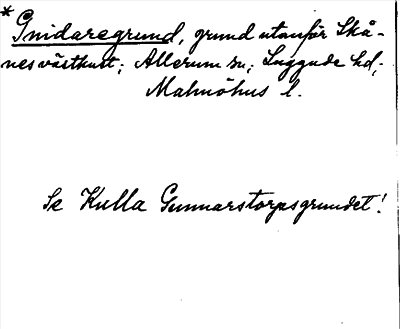 * Gnidaregrund, grund utanför Skå-
nes västkust; Allerum sn; Luggude hd,
Malmöhus l.
Se Kulla Gunnarstorpsgrundet!